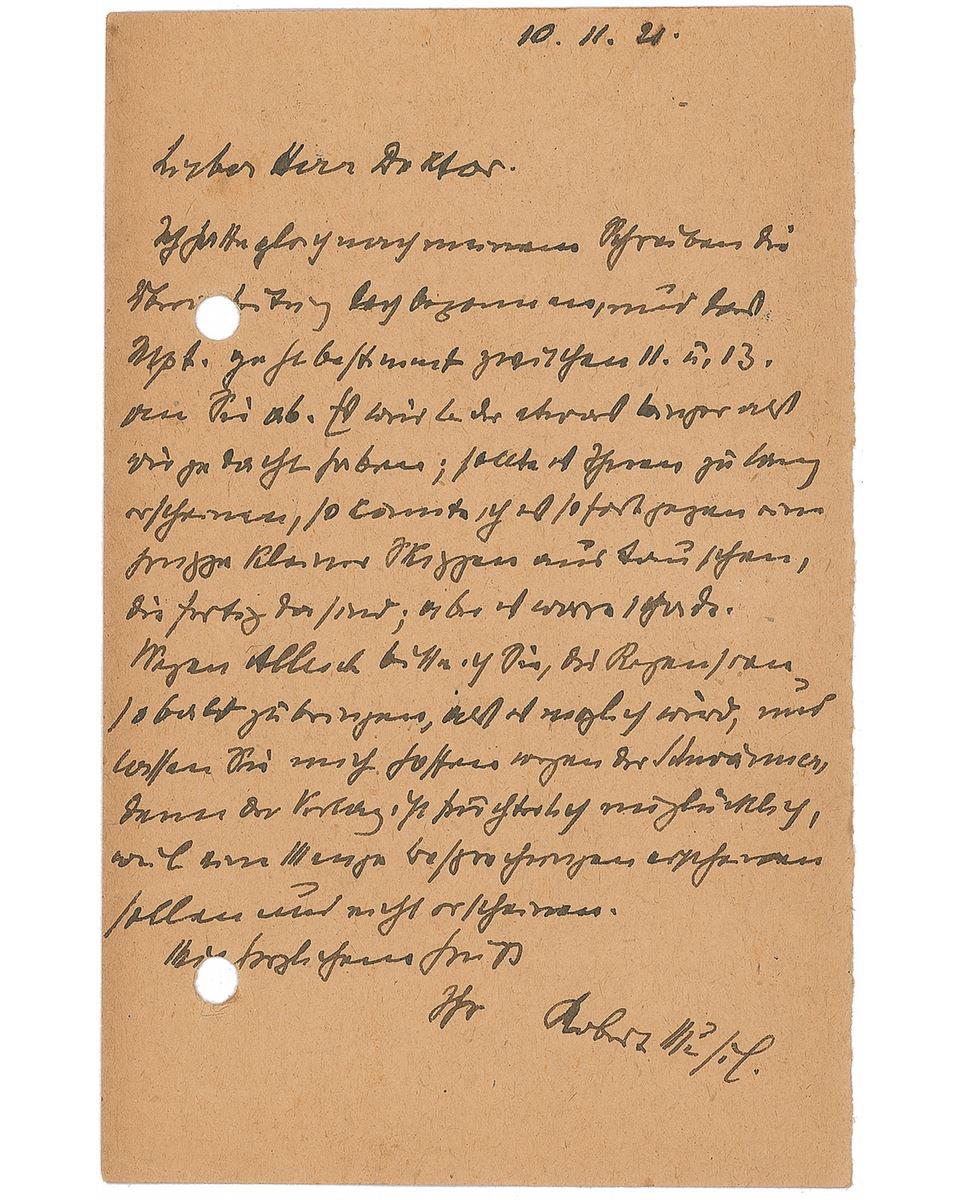 10. 11. 21.
Lieber Herr Doktor.
Ich hatte gleich nach meinem Schreiben die
begonnen, und das
Mpt. geht bestimmt zwischen 11. u. 13.
an Sie ab. Es wird leider etwas länger als
wir gedacht haben; sollte es Ihnen zu lang
erscheinen, so könnte ich es sofort gegen eine
Gruppe kleiner Skizzen austauschen,
die fertig da sind; aber es wäre schade.
Wegen Allesch bitte ich Sie, die Rezension
sobald zu bringen, als es möglich wird, und
lassen Sie mich hoffen wegen der Schwärmer,
denn der Verlag ist fürchterlich unglücklich,
weil eine Menge Besprechungen erscheinen
sollen und nicht erscheinen.
Mit herzlichem Gruß
Ihr Robert Musil.